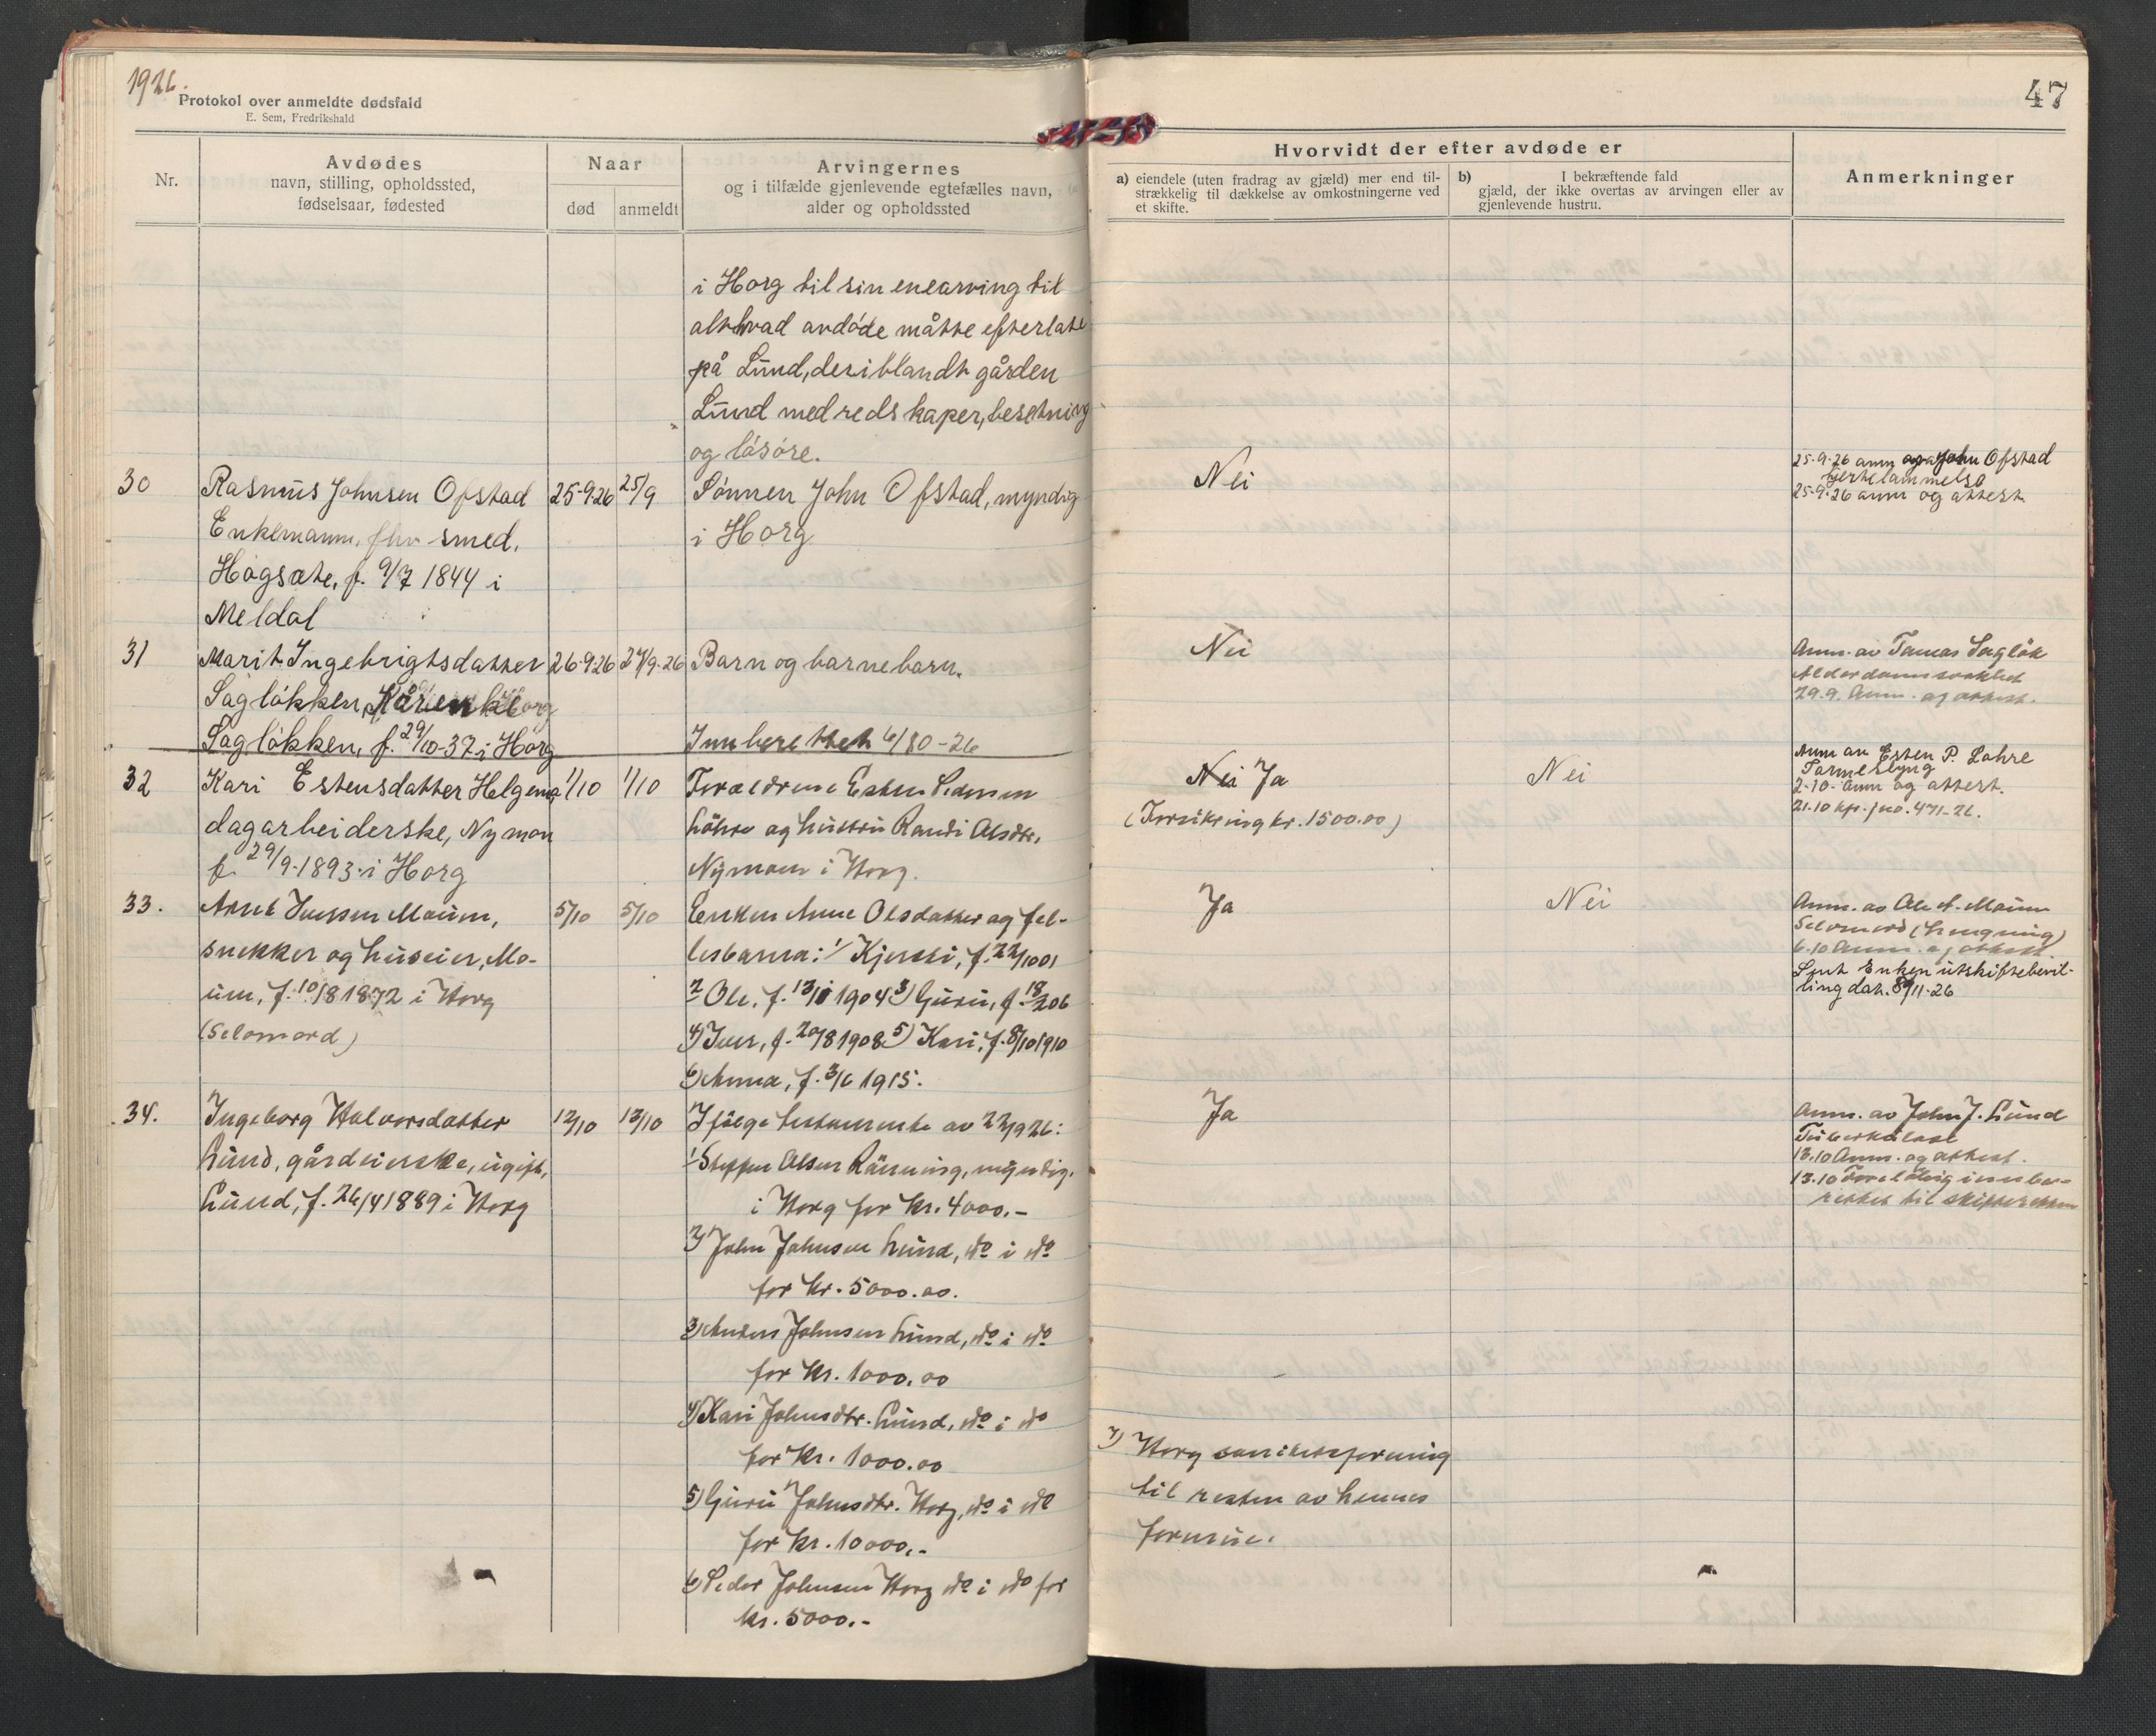 1926.
Protokol over anmeldte dødsfald
E. Sem, Fredrikshald
47
Nr.
Avdødes
navn, stilling, opholdssted,
fødselsaar, fødested
Naar
død
anmeldt
Arvingernes
og i tilfælde gjenlevende egtefælles navn,
alder og opholdssted
Hvorvidt der efter avdøde er
a) eiendele (uten fradrag av gjæld) mer end til-
strækkelig til dækkelse av omkostningerne ved
et skifte.
b) I bekræftende fald
gjæld, der ikke overtas av arvingen eller av
gjenlevende hustru.
Anmerkninger
i Horg til sin enearving til
alt hvad avdøde måtte efterlate
på Lund, deriblandt gården
Lund med redskaper, besetning
og løsøre.
30
Rasmus Johnsen Ofstad
Enkemann, fhv smed,
Høgsæte, f. 9/7 1844 i
Meldal
25-9-26
25/9
Sønnen John Ofstad, myndig
i Horg
Nei
25-9-26 anm av John Ofstad
Hjertelammelse
25-9-26 anm og attest.
31
Marit Ingebrigtsdatter
Sagløkken,
Sagløkken, f. 29/10-37 i Horg
26-9-26
27/9-26
Barn og barnebarn.
Innberettet 6/10-26
Nei
Anm. av Tomas Sagløk
Alderdomssvakhet
29.9. Anm. og attest.
32
Kari Estensdatter Helgemo,
dagarbeiderske, Nymoen
f. 29/9-1893 i Horg
1/10
1/10
Foreldrene Esten Pedersen
Løhre og hustru Randi Olsdtr.
Nymoen i Horg.
Nei Ja
(Forsikring kr. 1500.00)
Nei
Anm av Esten P. Løhre
Tarmeslyng
2-10- Anm og attest.
21.10 kps. jno. 471-26.
33.
Arnt Iversen Moum,
snekker og huseier, Mo-
um, f. 10/8 1872 i Horg
(Selvmord)
5/10
5/10
Enken Anne Olsdatter og fel-
lesbarna: 1/ Kjersti, f. 22/10 01
2 Ole, f. 13/1 1904 3) Guru, f. 18/2 06
4) Iver, f. 20/8 1908 5) Kari, f. 8/10 1910
6) Anna, f. 3/6 1915.
Ja
Nei
Anm. av Ole A. Moum
Selvmord (hengning)
6.10 Anm. og attest.
Sent Enken uskiftebevil-
ling dat. 8/11-26
34.
Ingeborg Halvorsdatter
Lund, gårdeierske, ugift,
Lund, f. 26/4 1889 i Horg
12/10
13/10
Ifølge testamente av 22/9 26:
1) Steffen Olsen Rønning, myndig,
i Horg for kr. 4000.-
2) John Johnsen Lund, do i do
for kr. 5000.00.
3) Anders Johnsen Lund, do i do
for kr. 1000.00
4) Kari Johnsdtr. Lund, do i do
for kr. 1000.00
5) Guru Johnsdtr. Horg, do i do
for kr. 10000.-
6) Peder Johnsen Horg do i do for
kr. 5000.-
Ja
7) Horg sanitetsforening
til resten av hennes
formue.
Anm. av John J. Lund
Tuberkulose
13.10 Anm. og attest.
13.10 Foreløbig innbe-
rettet til skifteretten